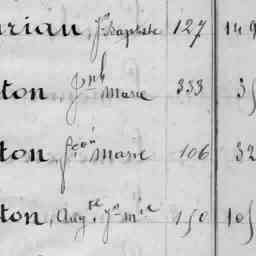 urian, Jn Baptiste 127 149
ton, Jph Marie 333 35
ton, fcois Marie 106 32
ton, Aug.te Jn M.ie 150 105